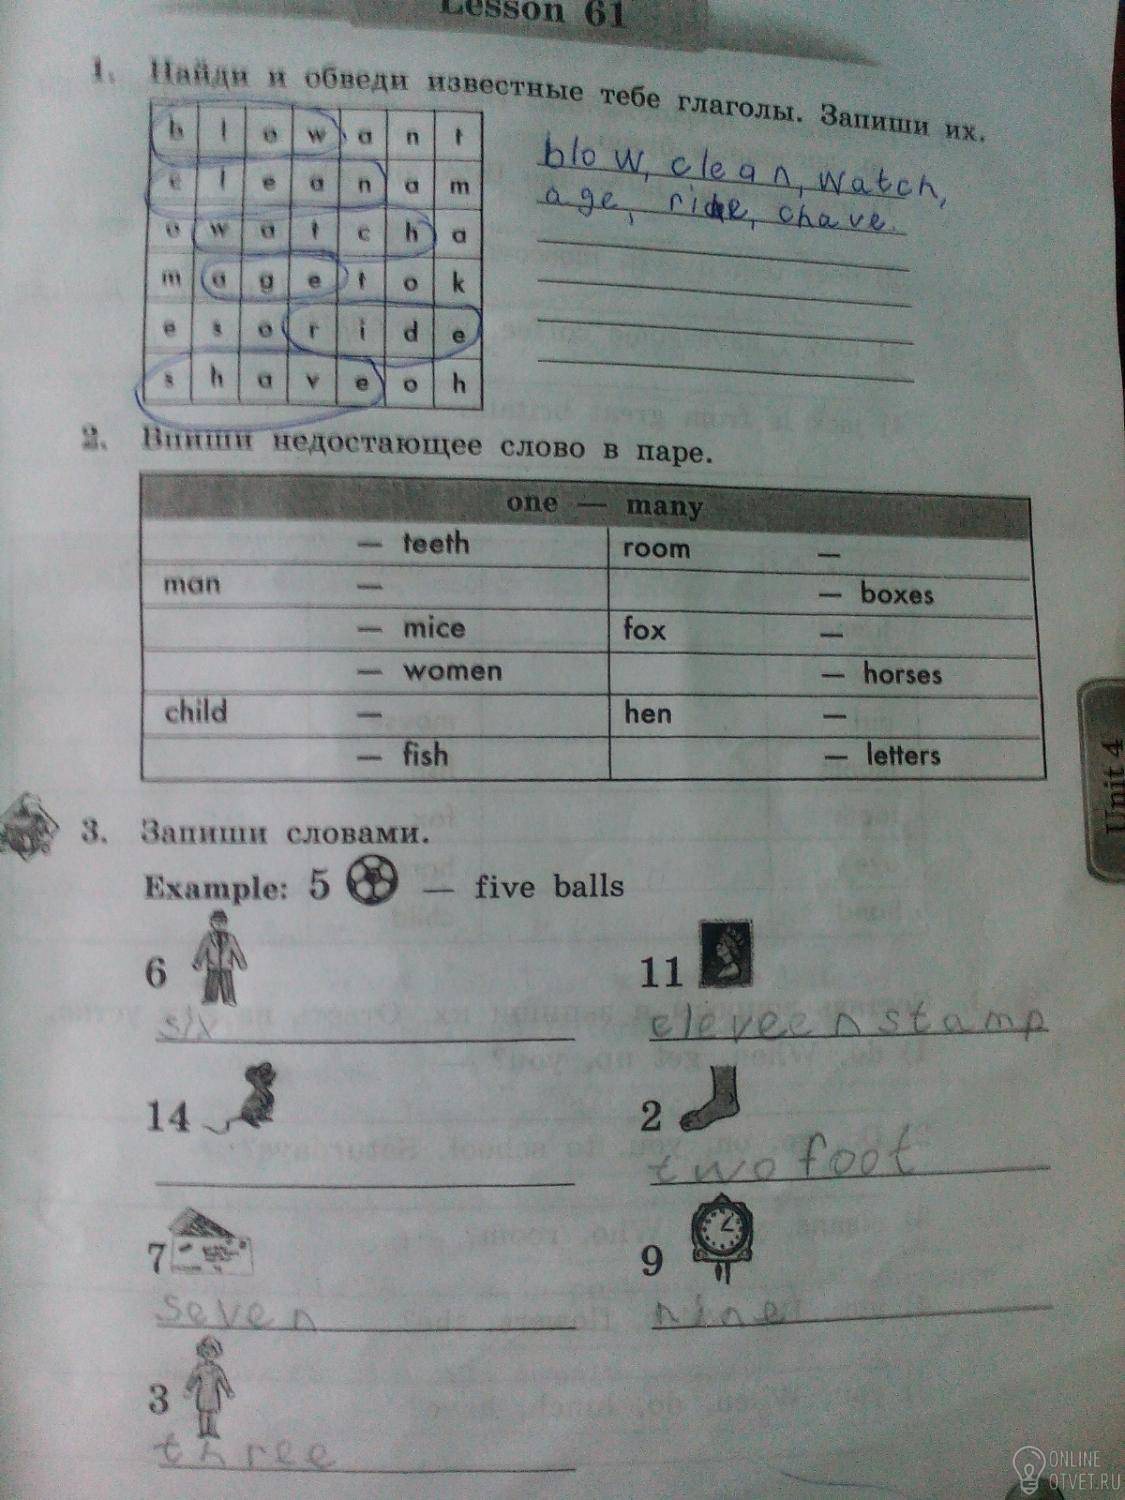 Lesson 61
1. Найди и обведи известные тебе глаголы. Запиши их.
b l o w a n t
c l e a n a m
o w a t c h a
m a g e t o k
e s o r i d e
s h a v e o h
blow, clean, watch,
age, ride, chave.
2. Впиши недостающее слово в паре.
one — many
— teeth room —
man — — boxes
— mice fox —
— women — horses
child — hen —
— fish — letters
Unit 4
3. Запиши словами.
Example: 5 — five balls
6 11
six eleveen stamp
14 2
two foot
7 9
seven nine
3
three
ONLINE
OTVET.RU